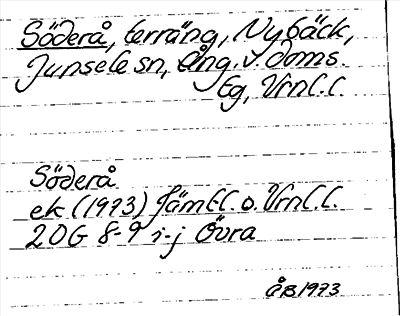 Söderå, terräng, Nybäck,
Junsele sn, Ång. v. doms.
Eg, Vrnl.l.
Söderå
ek. (1973) Jämtl. o. Vrnl.l.
20G 8-9 i-j Övra
ÅB 1973